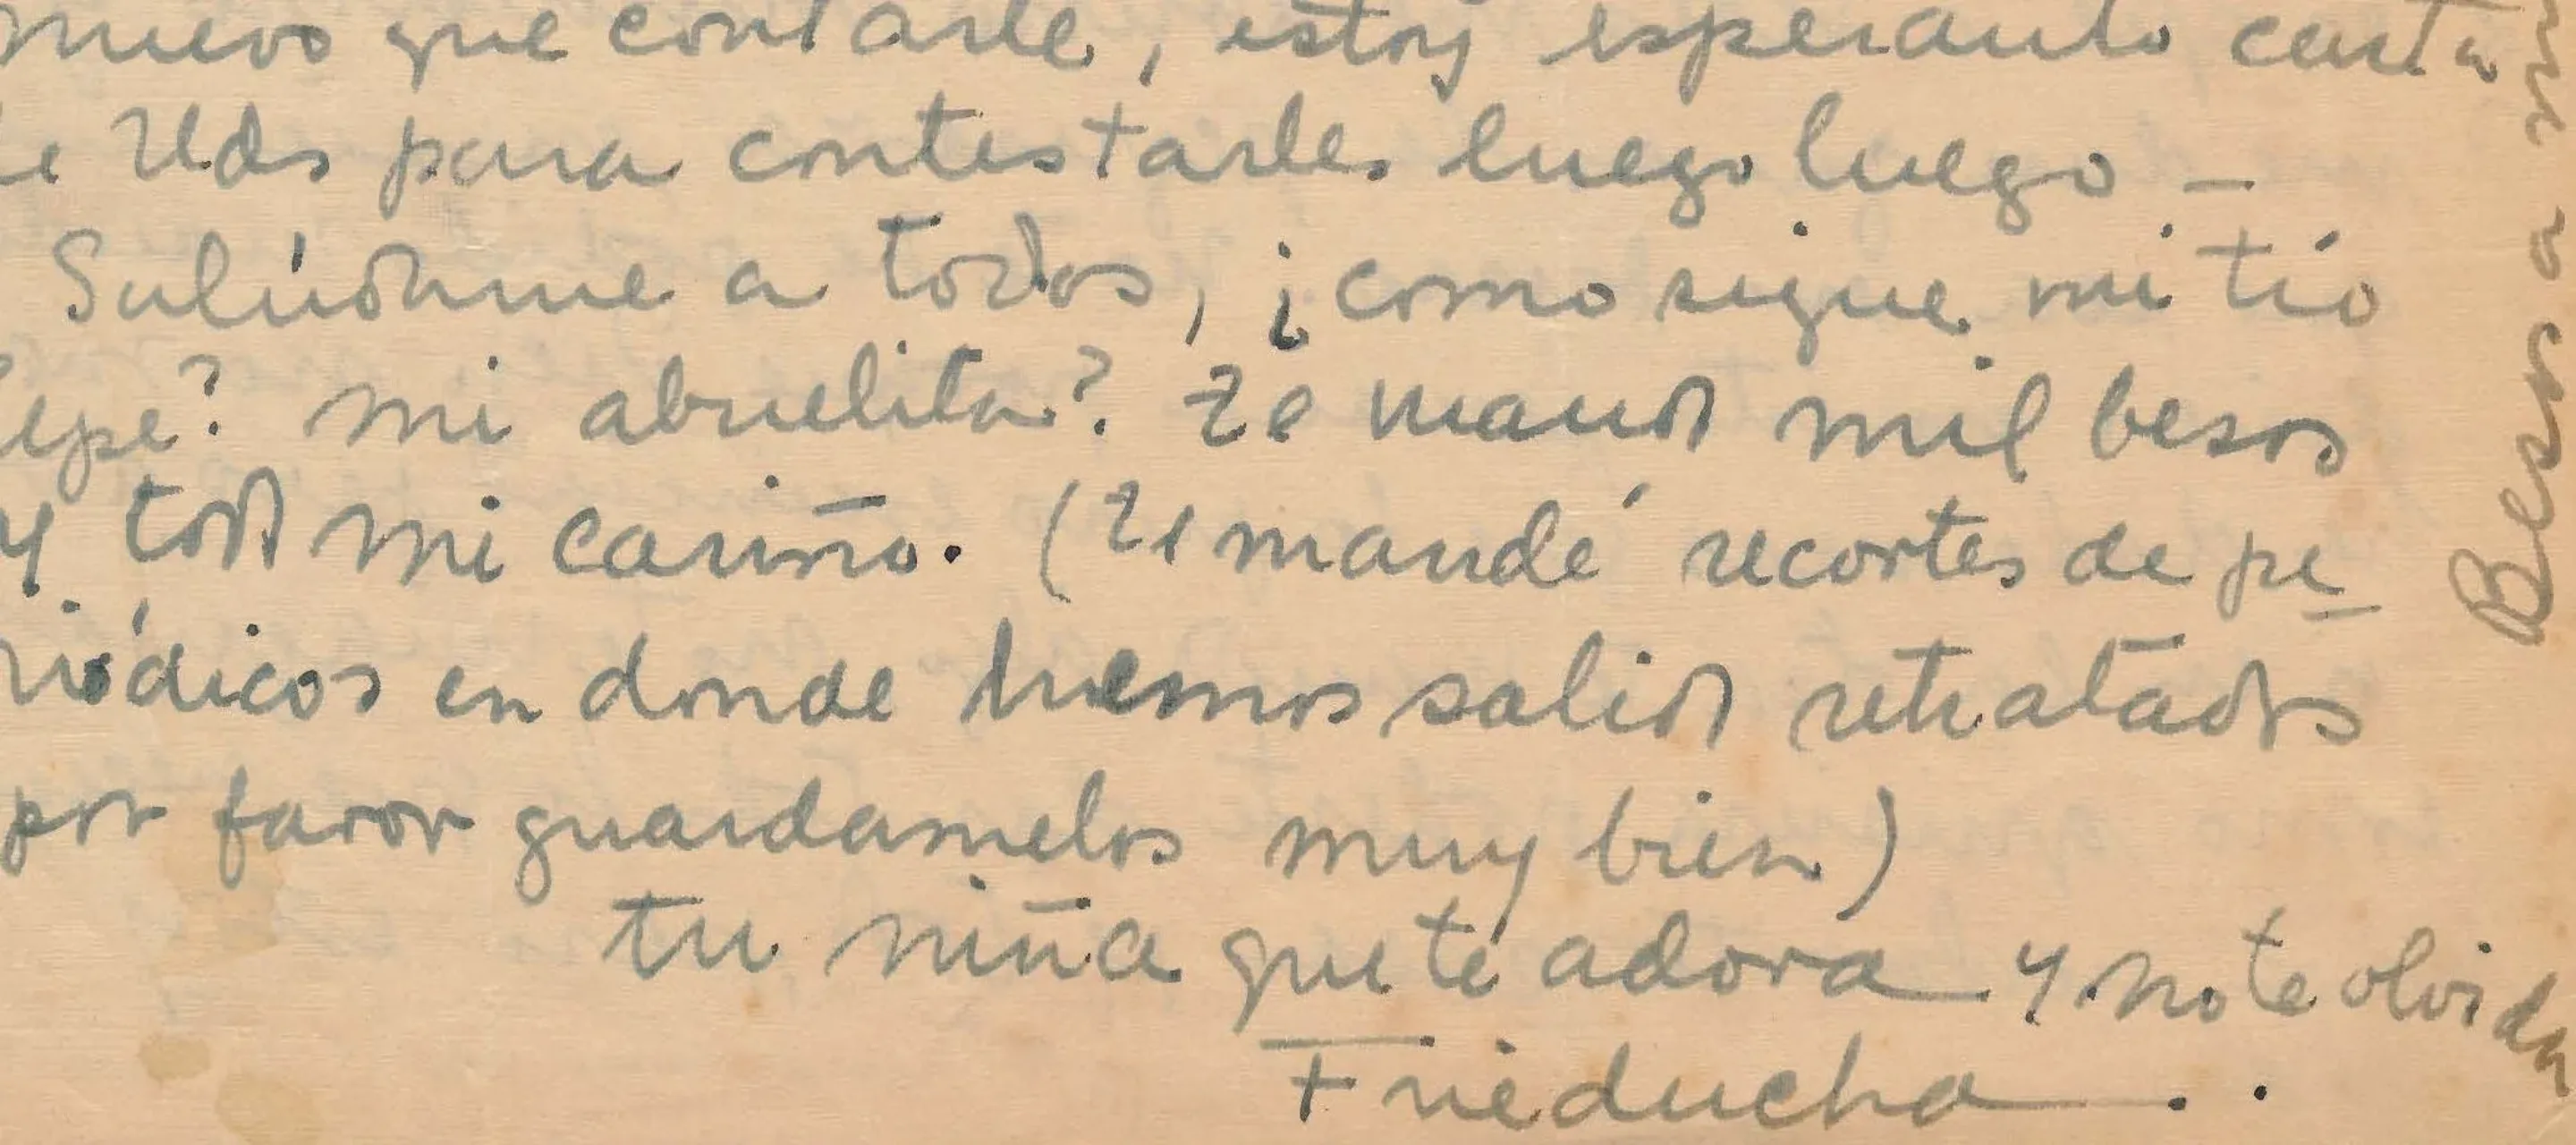 nuevo que contarle, estoy esperando carta
de Uds para contestarles luego luego _
Salúdame a todos, ¿como sigue mi tío
Pepe? mi abuelita? Te mando mil besos
y todo mi cariño. (Te mandé recortes de pe_
riódicos en donde hemos salido retratados
por favor guardamelos muy bien)
tu niña que te adora y no te olvida
Frieducha . .
Besos a